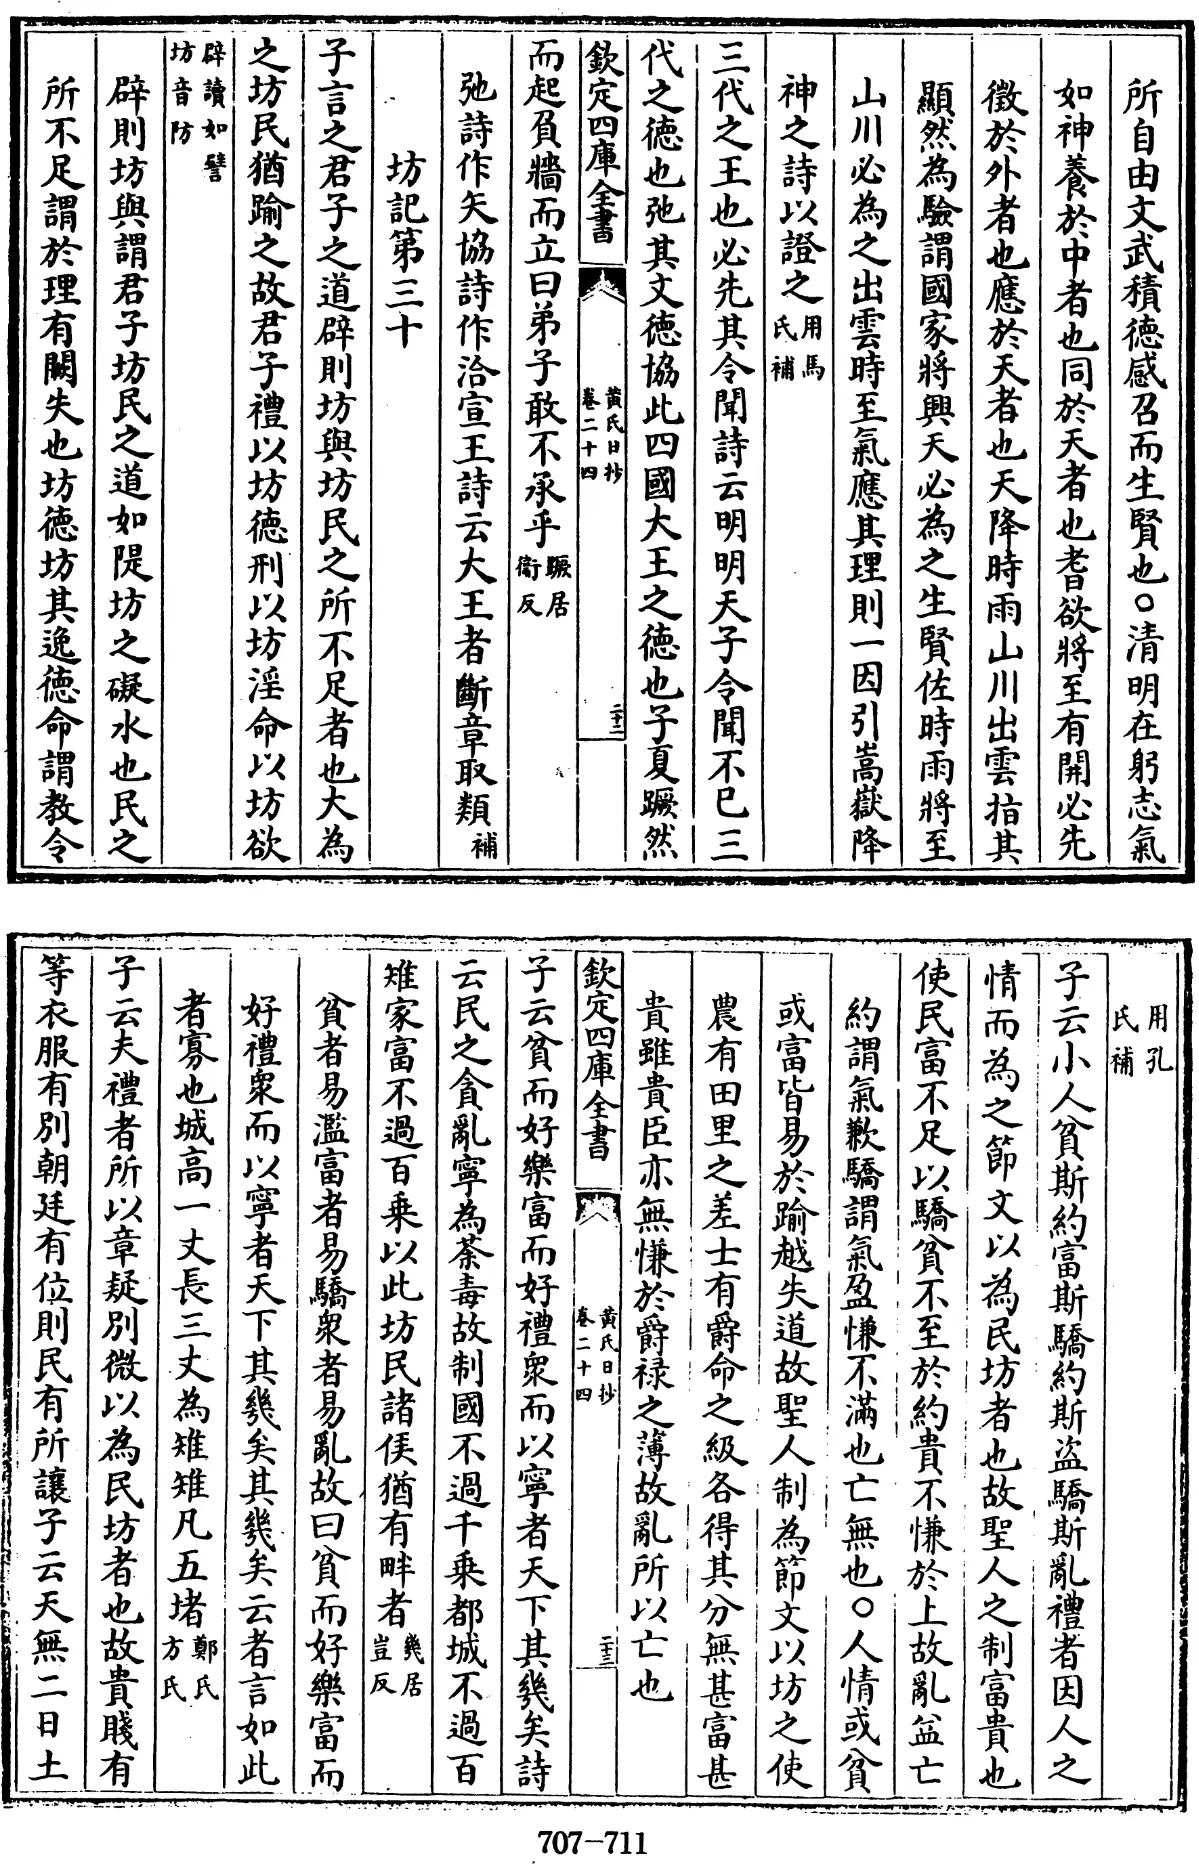 所自由文武積德感召而生賢也○清明在躬志氣
如神養於中者也同於天者也耆欲將至有開必先
徵於外者也應於天者也天降時雨山川出雲指其
顯然為驗謂國家將興天必為之生賢佐時雨將至
山川必為之出雲時至氣應其理則一因引嵩嶽降
神之詩以證之用馬氏補
三代之王也必先其令聞詩云明明天子令聞不已三
代之德也弛其文德協此四國大王之德也子夏蹶然
欽定四庫全書
黃氏日抄
卷二十四
二十二
而起負牆而立曰弟子敢不承乎蹶居衞反
弛詩作矢協詩作洽宣王詩云大王者斷章取類補
坊記第三十
子言之君子之道辟則坊與坊民之所不足者也大為
之坊民猶踰之故君子禮以坊德刑以坊淫命以坊欲
辟讀如譬
坊音防
辟則坊與謂君子坊民之道如隄坊之礙水也民之
所不足謂於理有闕失也坊德坊其逸德命謂教令
用孔
氏補
子云小人貧斯約富斯驕約斯盜驕斯亂禮者因人之
情而為之節文以為民坊者也故聖人之制富貴也
使民富不足以驕貧不至於約貴不慊於上故亂益亡
約謂氣歉驕謂氣盈慊不滿也亡無也○人情或貧
或富皆易於踰越失道故聖人制為節文以坊之使
農有田里之差士有爵命之級各得其分無甚富甚
貴雖貴臣亦無慊於爵祿之薄故亂所以亡也
欽定四庫全書
黃氏日抄
卷二十四
二十三
子云貧而好樂富而好禮衆而以寧者天下其幾矣詩
云民之貪亂寧為荼毒故制國不過千乘都城不過百
雉家富不過百乘以此坊民諸侯猶有畔者幾居豈反
貧者易濫富者易驕衆者易亂故曰貧而好樂富而
好禮衆而以寧者天下其幾矣其幾矣云者言如此
者寡也城高一丈長三丈為雉雉凡五堵鄭氏方氏
子云夫禮者所以章疑別微以為民坊者也故貴賤有
等衣服有別朝廷有位則民有所讓子云天無二日土
707-711